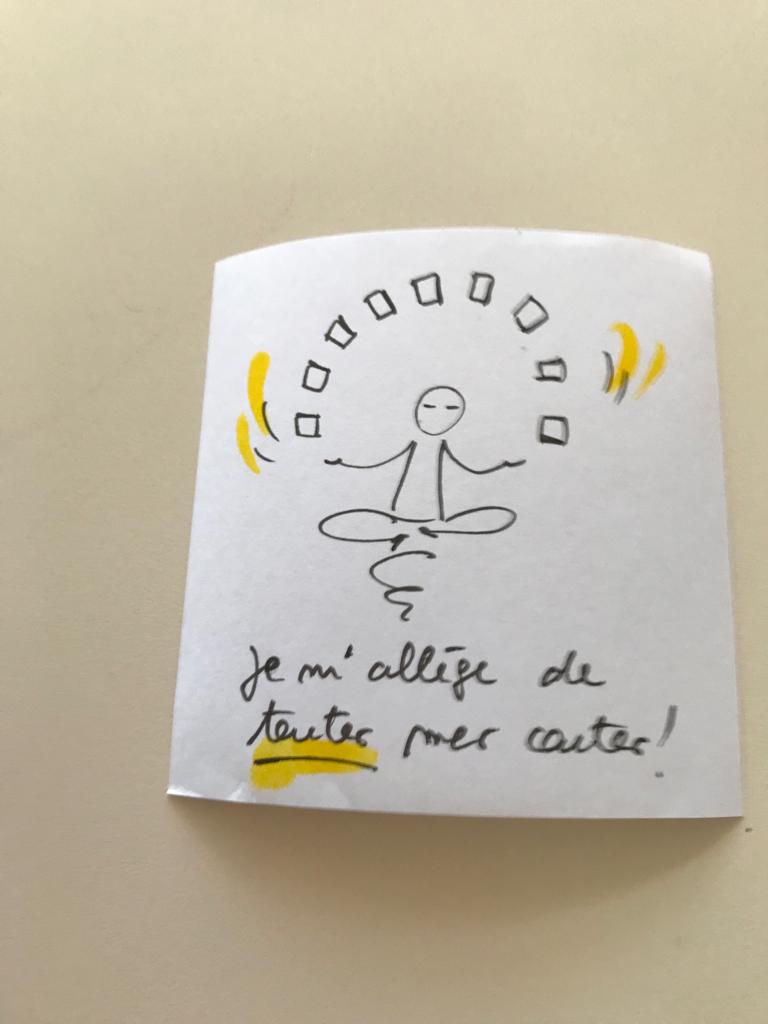 Je m'allège de
toutes mes cartes !